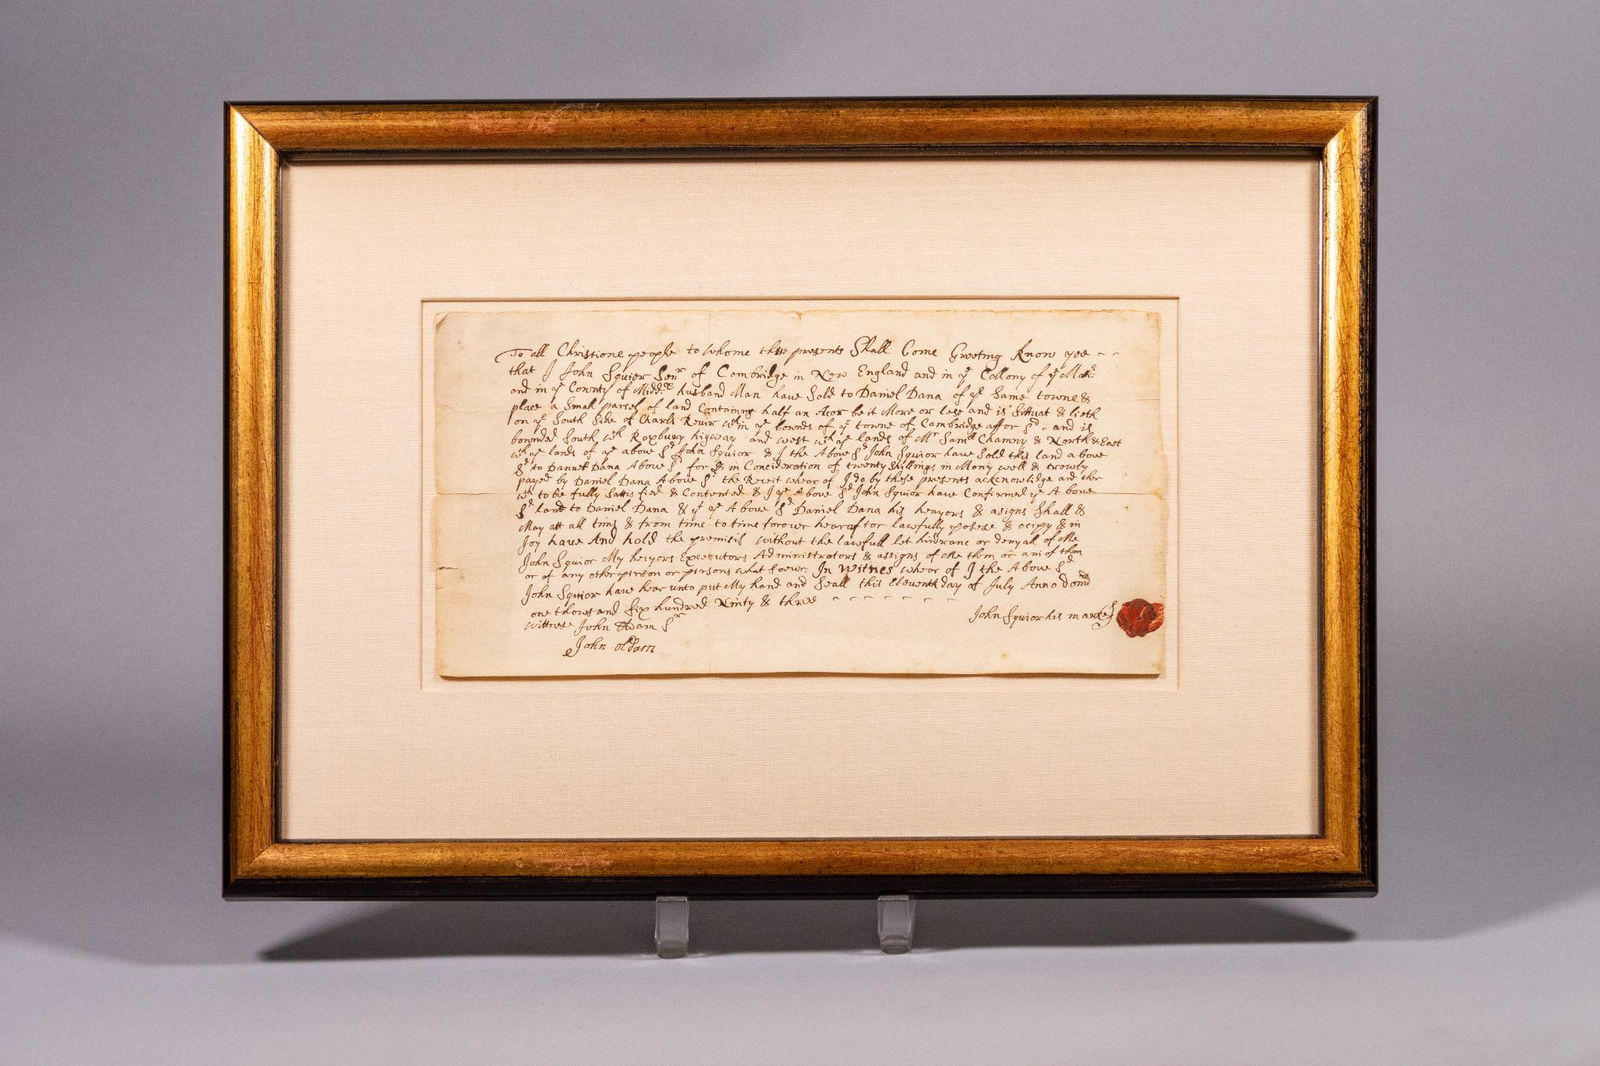 To all Christione people to whome thes presents Shall Come Greeting Know yee
that I John Squior Senr of Cambridge in New England and in ye Collony of ye Mas:
and in ye County of Middx husband Man have Sold to Daniel Dana of ye Same towne &
place a Small parsel of land Containing half an Acor be it More or less and is Sittuat & lieth
on ye South Side of Charls Rivir wthin ye bounds of ye towne of Cambridge affor sd and is
bounded South wth Roxbury higway and west wth ye lands of Mr Samll Chamny & North & East
wth ye lands of ye above sd John Squior & I the Above sd John Squior have Sold this land above
sd to Daniel Dana Above sd for & in Concideration of twenty Shillings in Mony well & trewly
payed by Daniel Dana Above sd the Receit wheor of I do by these presents acknowlidge and ther
wth to be fully Sattisfied & Contented & I ye Above sd John Squior have Confirmed ye Above
sd land to Daniel Dana & yt ye Above sd Daniel Dana his heayors & asigns Shall &
May att all tims & from time to time forever hearafter lawfully posese & ocipy & in
Joy have And hold the premisis without the lawfull let hindranc or denyall of Me
John Squior My heiyors Executors Administrators & assigns of Me them or ani of them
or of any other person or persons what soever In Witnes wheor of I the Above sd
John Squior have hear unto put My hand and Seall this Eleventh day of July Anno domi
one thousand Six hundred Ninty & three
Wittnese John Adam Sr
John Squior his marke
John oldam